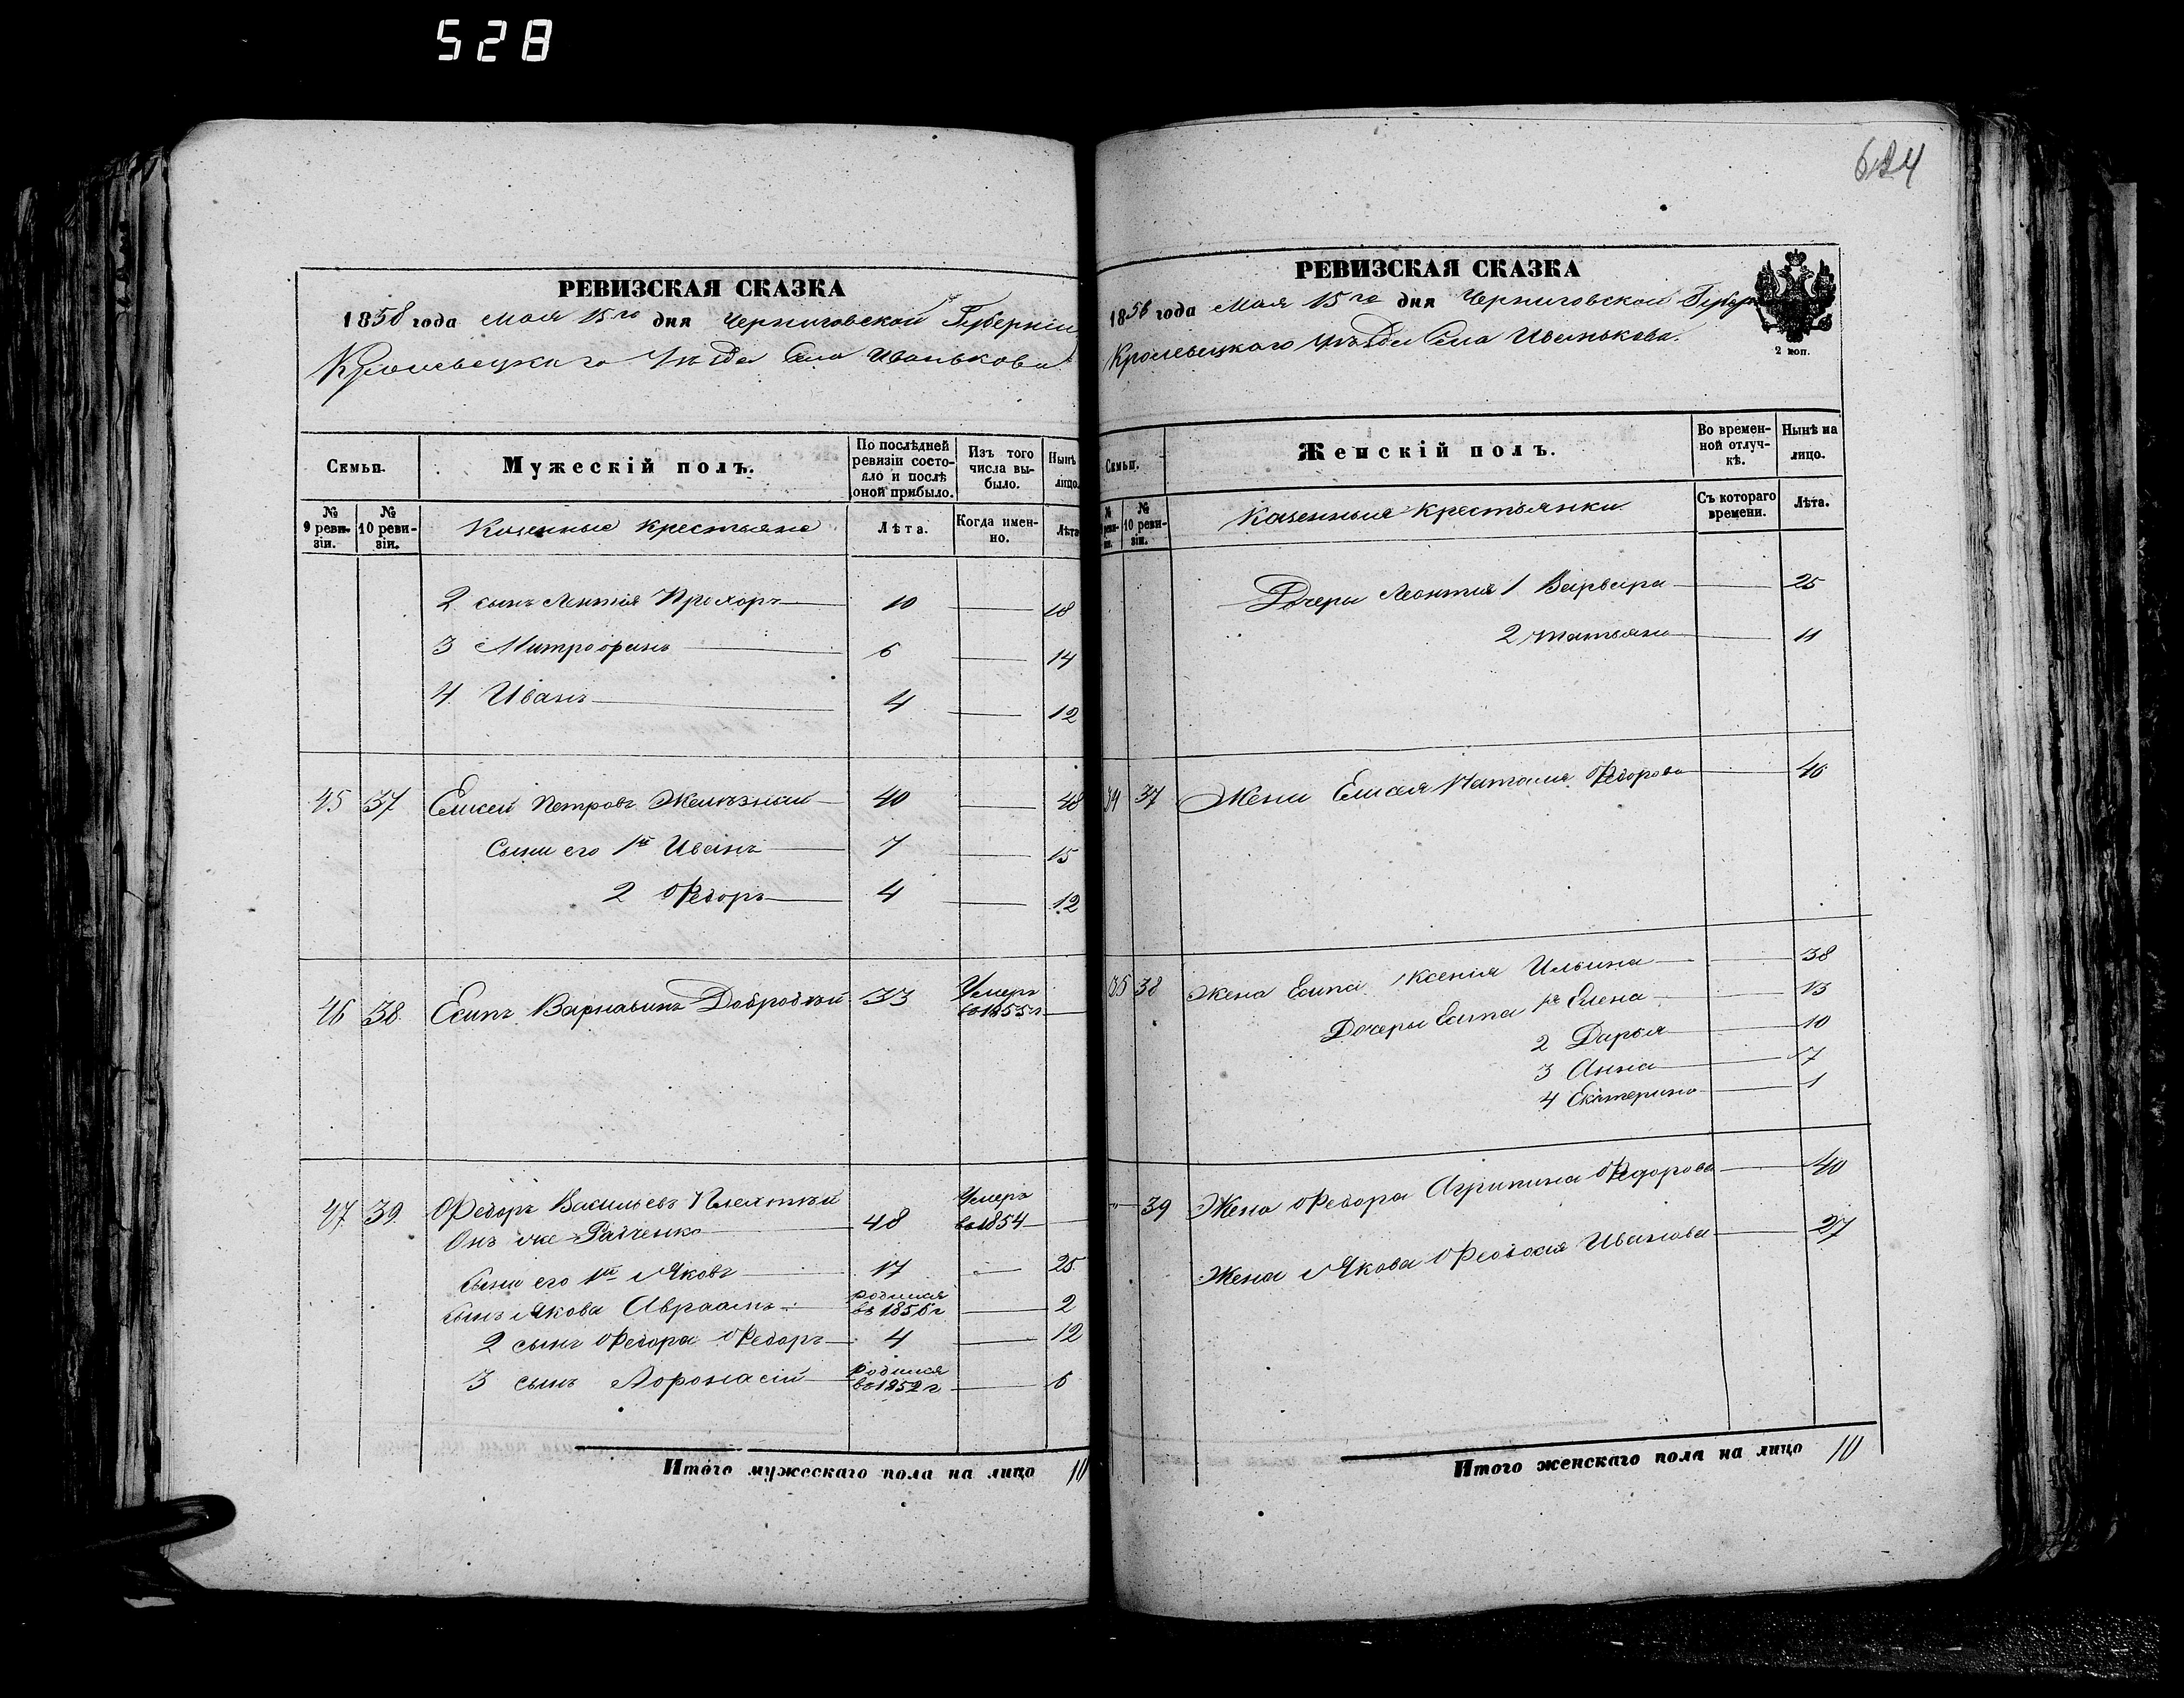 528
624
РЕВИЗСКАЯ СКАЗКА
1858 года Мая 15го дня Черниговской Губерніи
Кролевецкаго Уѣзда Села Иванькова
Семьи.
Мужескій полъ.
По послѣдней ревизіи состояло и послѣ оной прибыло.
Изъ того числа выбыло.
Нынѣ лицо.
№ 9 ревизіи.
№ 10 ревизіи.
Казенные крестьяне
Лѣта.
Когда именно.
Лѣта
2 сынъ Леонтія Прохоръ 10 18
3 Митрофанъ 6 14
4 Иванъ 4 12
45 37 Елисей Петровъ Желѣзный 40 48
Сыны его 1й Иванъ 7 15
2 Федоръ 4 12
46 38 Есипъ Варнавинъ Добродѣй 33 Умеръ въ 1855 г
47 39 Федоръ Васильевъ
Онъ же Радченко 48 Умеръ въ 1854
Сыны его 1й Яковъ 17 25
Сынъ Якова Авраамъ родился въ 1856 г 2
2 сынъ Федора Федоръ 4 12
3 сынъ Афонасій родился въ 1852 г 6
Итого мужескаго пола на лицо 10
РЕВИЗСКАЯ СКАЗКА
1858 года Мая 15го дня Черниговской
Кролевецкаго Уѣзда Села Иванькова.
2 коп.
Семьи.
Женскій полъ.
Во временной отлучкѣ.
Нынѣ на лицо.
№ 10 ревизіи.
Казенныя крестьянки
Съ котораго времени.
Лѣта.
Дочери Леонтія 1 Варвара 25
2 Татьяна 11
39 37 Жена Елисея Наталія Федорова 46
35 38 Жена Есипа Ксенія Ильина 38
Дочеры Есипа 1я Елена 13
2 Дарья 10
3 Анна 7
4 Екатерина 1
39 Жена Федора Агрипина Федорова 40
Жена Якова Феодосія Иванова 27
Итого женскаго пола на лицо 10